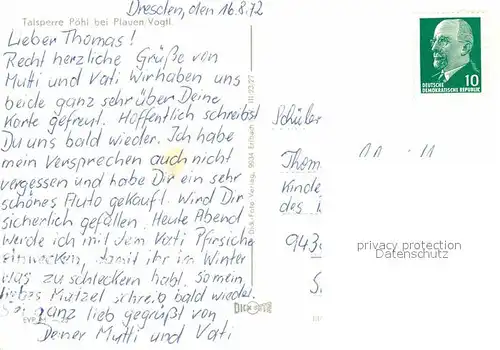 Dresden, den 16.8.72
Talsperre Pöhl bei Plauen Vogtl.
Lieber Thomas!
Recht herzliche Grüße von
Mutti und Vati Wir haben uns
beide ganz sehr über Deine
Karte gefreut. Hoffentlich schreibst
Du uns bald wieder. Ich habe
mein Versprechen auch nicht
vergessen und habe Dir ein sehr
schönes Auto gekauft. Wird Dir
sicherlich gefallen. Heute Abend
werde ich mit dem Vati Pfirsiche
einwecken, damit ihr im Winter
was zu schleckern habt. So mein
liebes Matzel schreib bald wieder.
Sei ganz lieb gegrüßt von
Deiner Mutti und Vati
Dick-Foto-Verlag, 9934 Erlbach III/22/27
DICK FOTO
EVP
10
DEUTSCHE
DEMOKRATISCHE REPUBLIK
Schüler
Thom
Kinde
des
943
privacy protection
Datenschutz